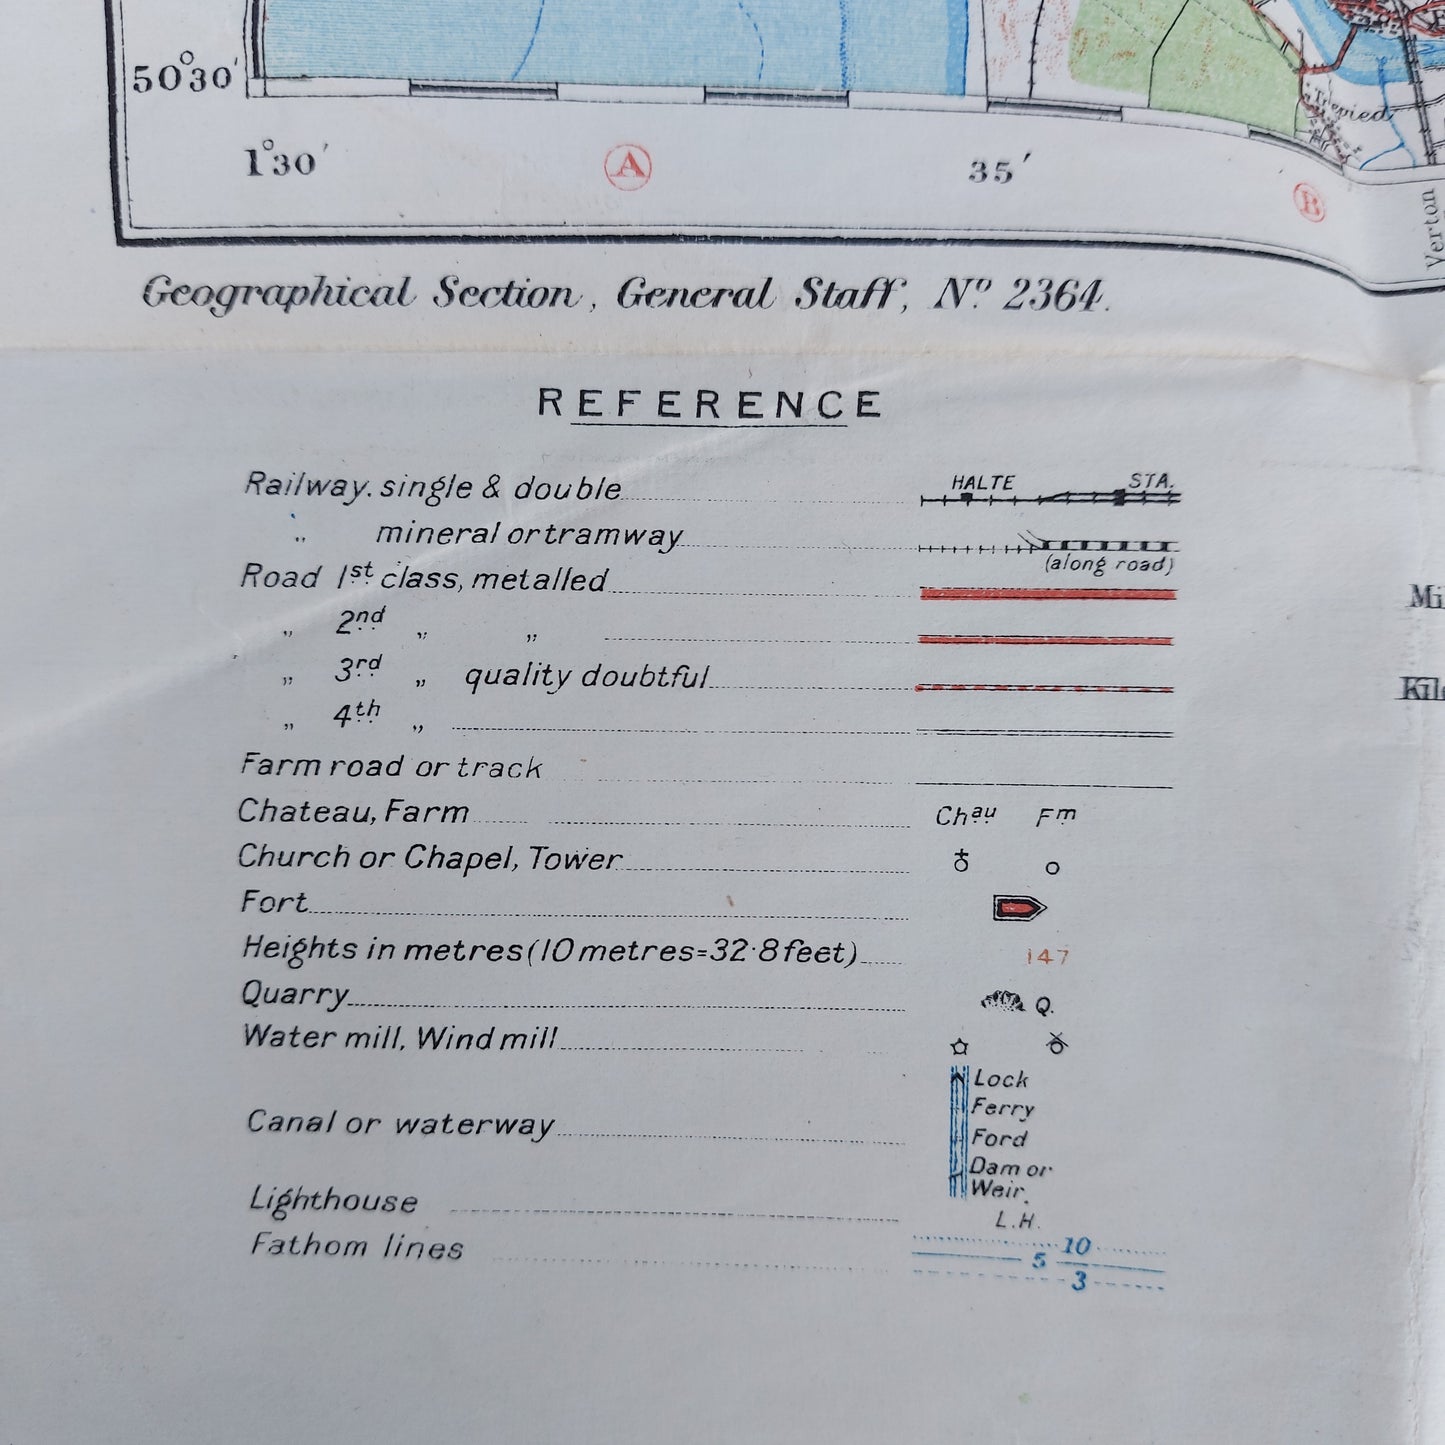 50°30′
1°30′
A
35′
B
Trepied
Verton
Geographical Section, General Staff, Nº 2364.
REFERENCE
Railway. single & double HALTE STA.
„ mineral or tramway (along road)
Road 1st class, metalled
„ 2nd „ „
„ 3rd „ quality doubtful
„ 4th „
Farm road or track
Chateau, Farm Chau Fm
Church or Chapel, Tower
Fort
Heights in metres (10 metres=32·8 feet) 147
Quarry Q.
Water mill, Wind mill
Canal or waterway
Lock
Ferry
Ford
Dam or
Weir.
Lighthouse L.H.
Fathom lines
10
5
3